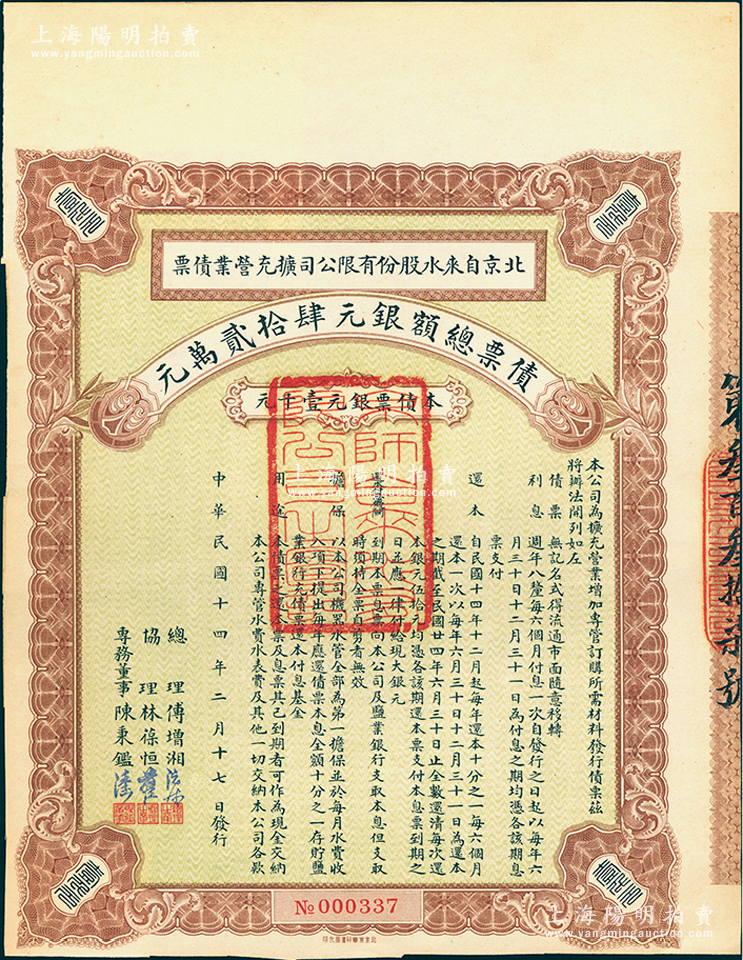 上海陽明拍賣
www.yangmingauction.com
北京自來水股份有限公司擴充營業債票
債票總額銀元肆拾貳萬元
本債票銀元壹千元
本公司為擴充營業增加專管訂購所需材料發行債票茲
將辦法開列如左
債票 無記名式得流通市面隨意移轉
利息 週年八釐每六個月付息一次自發行之日起以每年六
月三十日十二月三十一日為付息之期均憑各該期息
票支付
還本 自民國十四年十二月起每年還本十分之一每六個月
還本一次以每年六月三十日十二月三十一日為還本
之期截至民國廿四年六月三十日止全數還清每次還
本銀元伍拾元均憑各該期還本票支付本息票到期之
日並應一律付給現大銀元
到期本票息票向本公司及鹽業銀行支取本息但支取
時須持全票自剪者無效
擔保 以本公司機器水管全部為第一擔保並於每月水費收
入項下提出每年應還債票本息全額十分之一存貯鹽
業銀行充債票還本付息基金
用途 本債票之還本票及息票其已到期者可作為現金交納
本公司專管水費水表費及其他一切交納本公司各款
中華民國十四年二月十七日發行
總理傅增湘
協理林葆恒
專務董事陳秉鑑
第叁百叁拾柒號
№ 000337
上海陽明拍賣
www.yangmingauction.com
上海陽明拍賣
www.yangmingauction.com